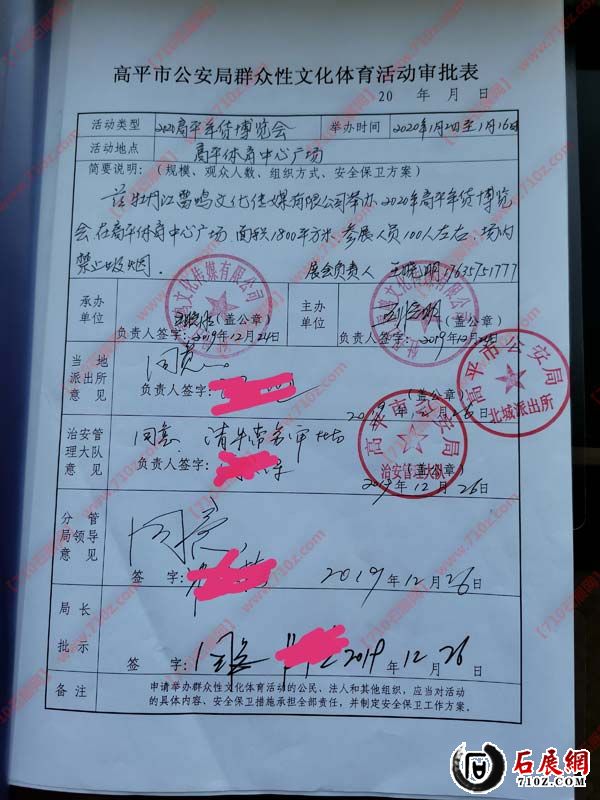 高平市公安局群众性文化体育活动审批表
20 年 月 日
活动类型 2020高平年货博览会 举办时间 2020年1月2日至1月16日
活动地点 高平体育中心广场
简要说明：（规模、观众人数、组织方式、安全保卫方案）
兹牡丹江雷鸣文化传媒有限公司举办2020年高平年货博览
会，在高平体育中心广场，面积1800平方米，参展人员100人左右，场内
禁止吸烟。 展会负责人 王晓明17635751777
承办单位 （盖公章） 负责人签字：2019年12月24日
主办单位 （盖公章） 负责人签字：2019年12月24日
当地派出所意见 同意 负责人签字： （盖公章） 2019年12月26日
高平市公安局
北城派出所
治安管理大队意见 同意 负责人签字： （盖公章） 2019年12月26日
高平市公安局
治安管理大队
分管局领导意见 同意 签字： 2019年12月26日
局长批示 签字：同意 2019年12月26日
备注 申请举办群众性文化体育活动的公民、法人和其他组织，应当对活动
的具体内容、安全保卫措施承担全部责任，并制定安全保卫工作方案。
石展網
710Z.COM